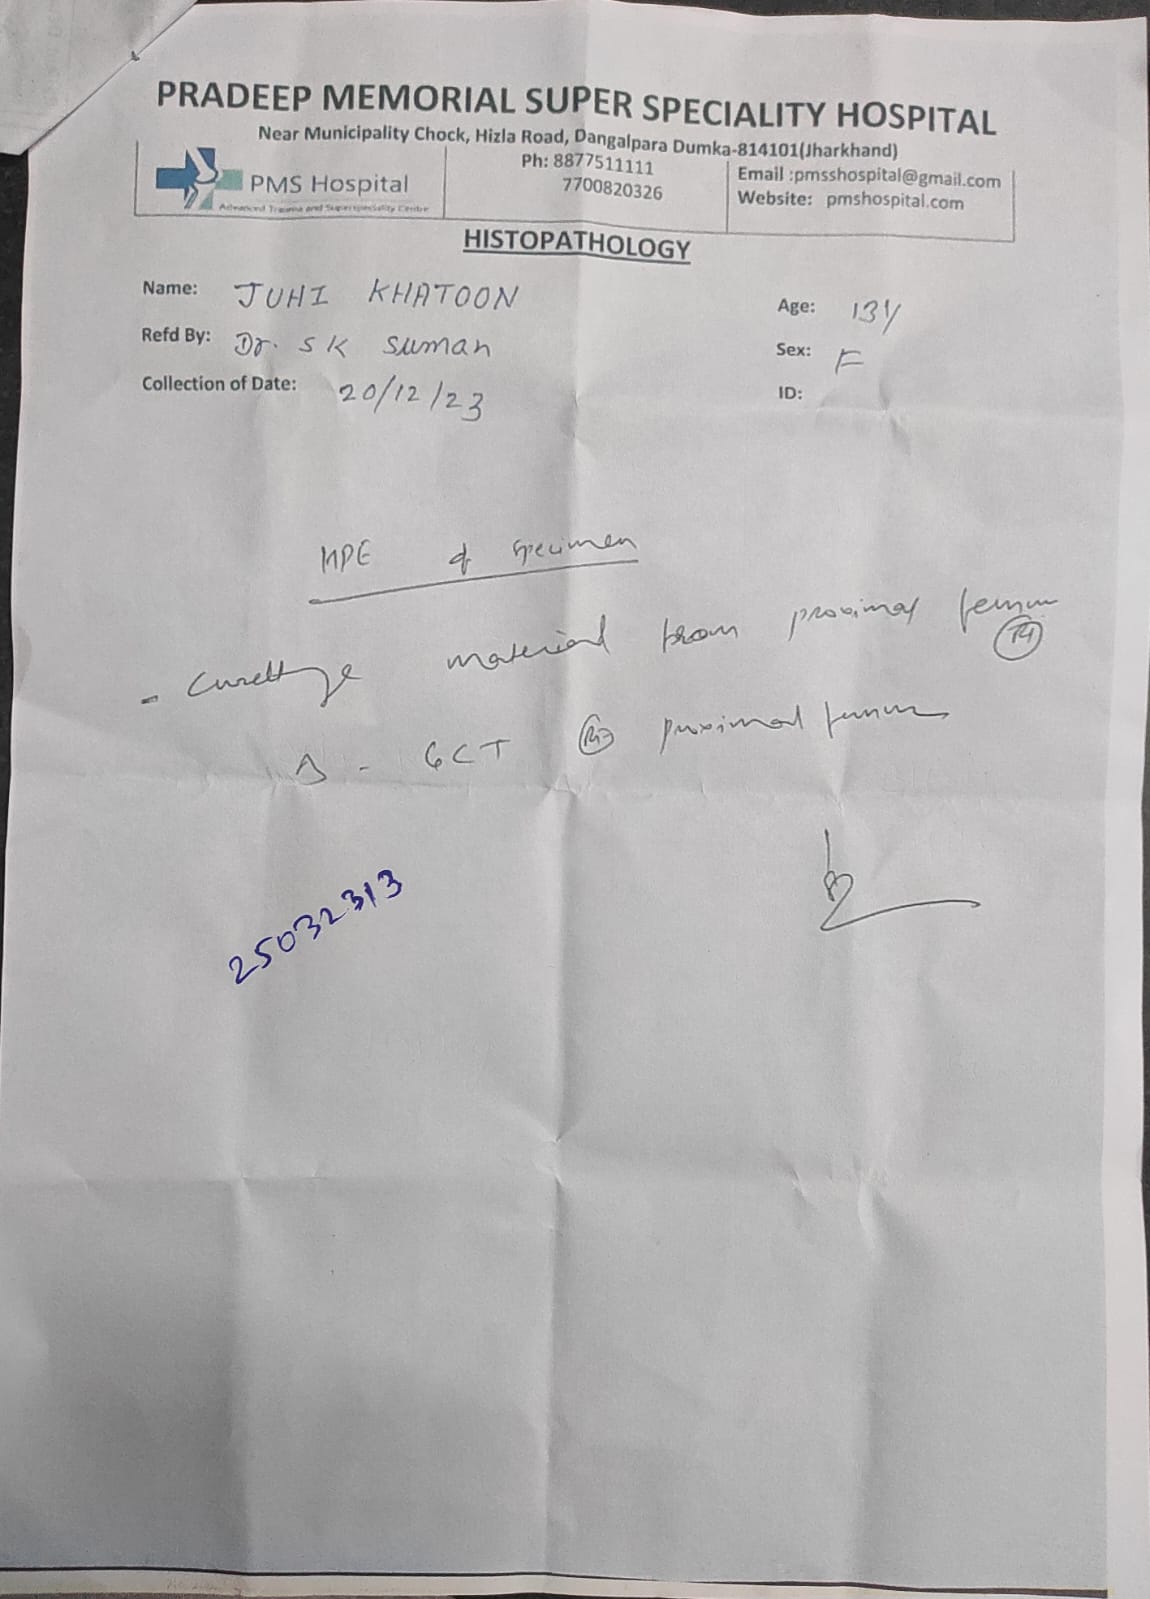 PRADEEP MEMORIAL SUPER SPECIALITY HOSPITAL
Near Municipality Chock, Hizla Road, Dangalpara Dumka-814101(Jharkhand)
PMS Hospital
Advanced Trauma and Superspeciality Centre
Ph: 8877511111
7700820326
Email :pmsshospital@gmail.com
Website: pmshospital.com
HISTOPATHOLOGY
Name: JUHI KHATOON
Age: 13Y
Refd By: Dr. S K Suman
Sex: F
Collection of Date: 20/12/23
ID:
HPE of specimen
- Curettage material from proximal femur
Rt
Δ - GCT Rt proximal femur
25032313